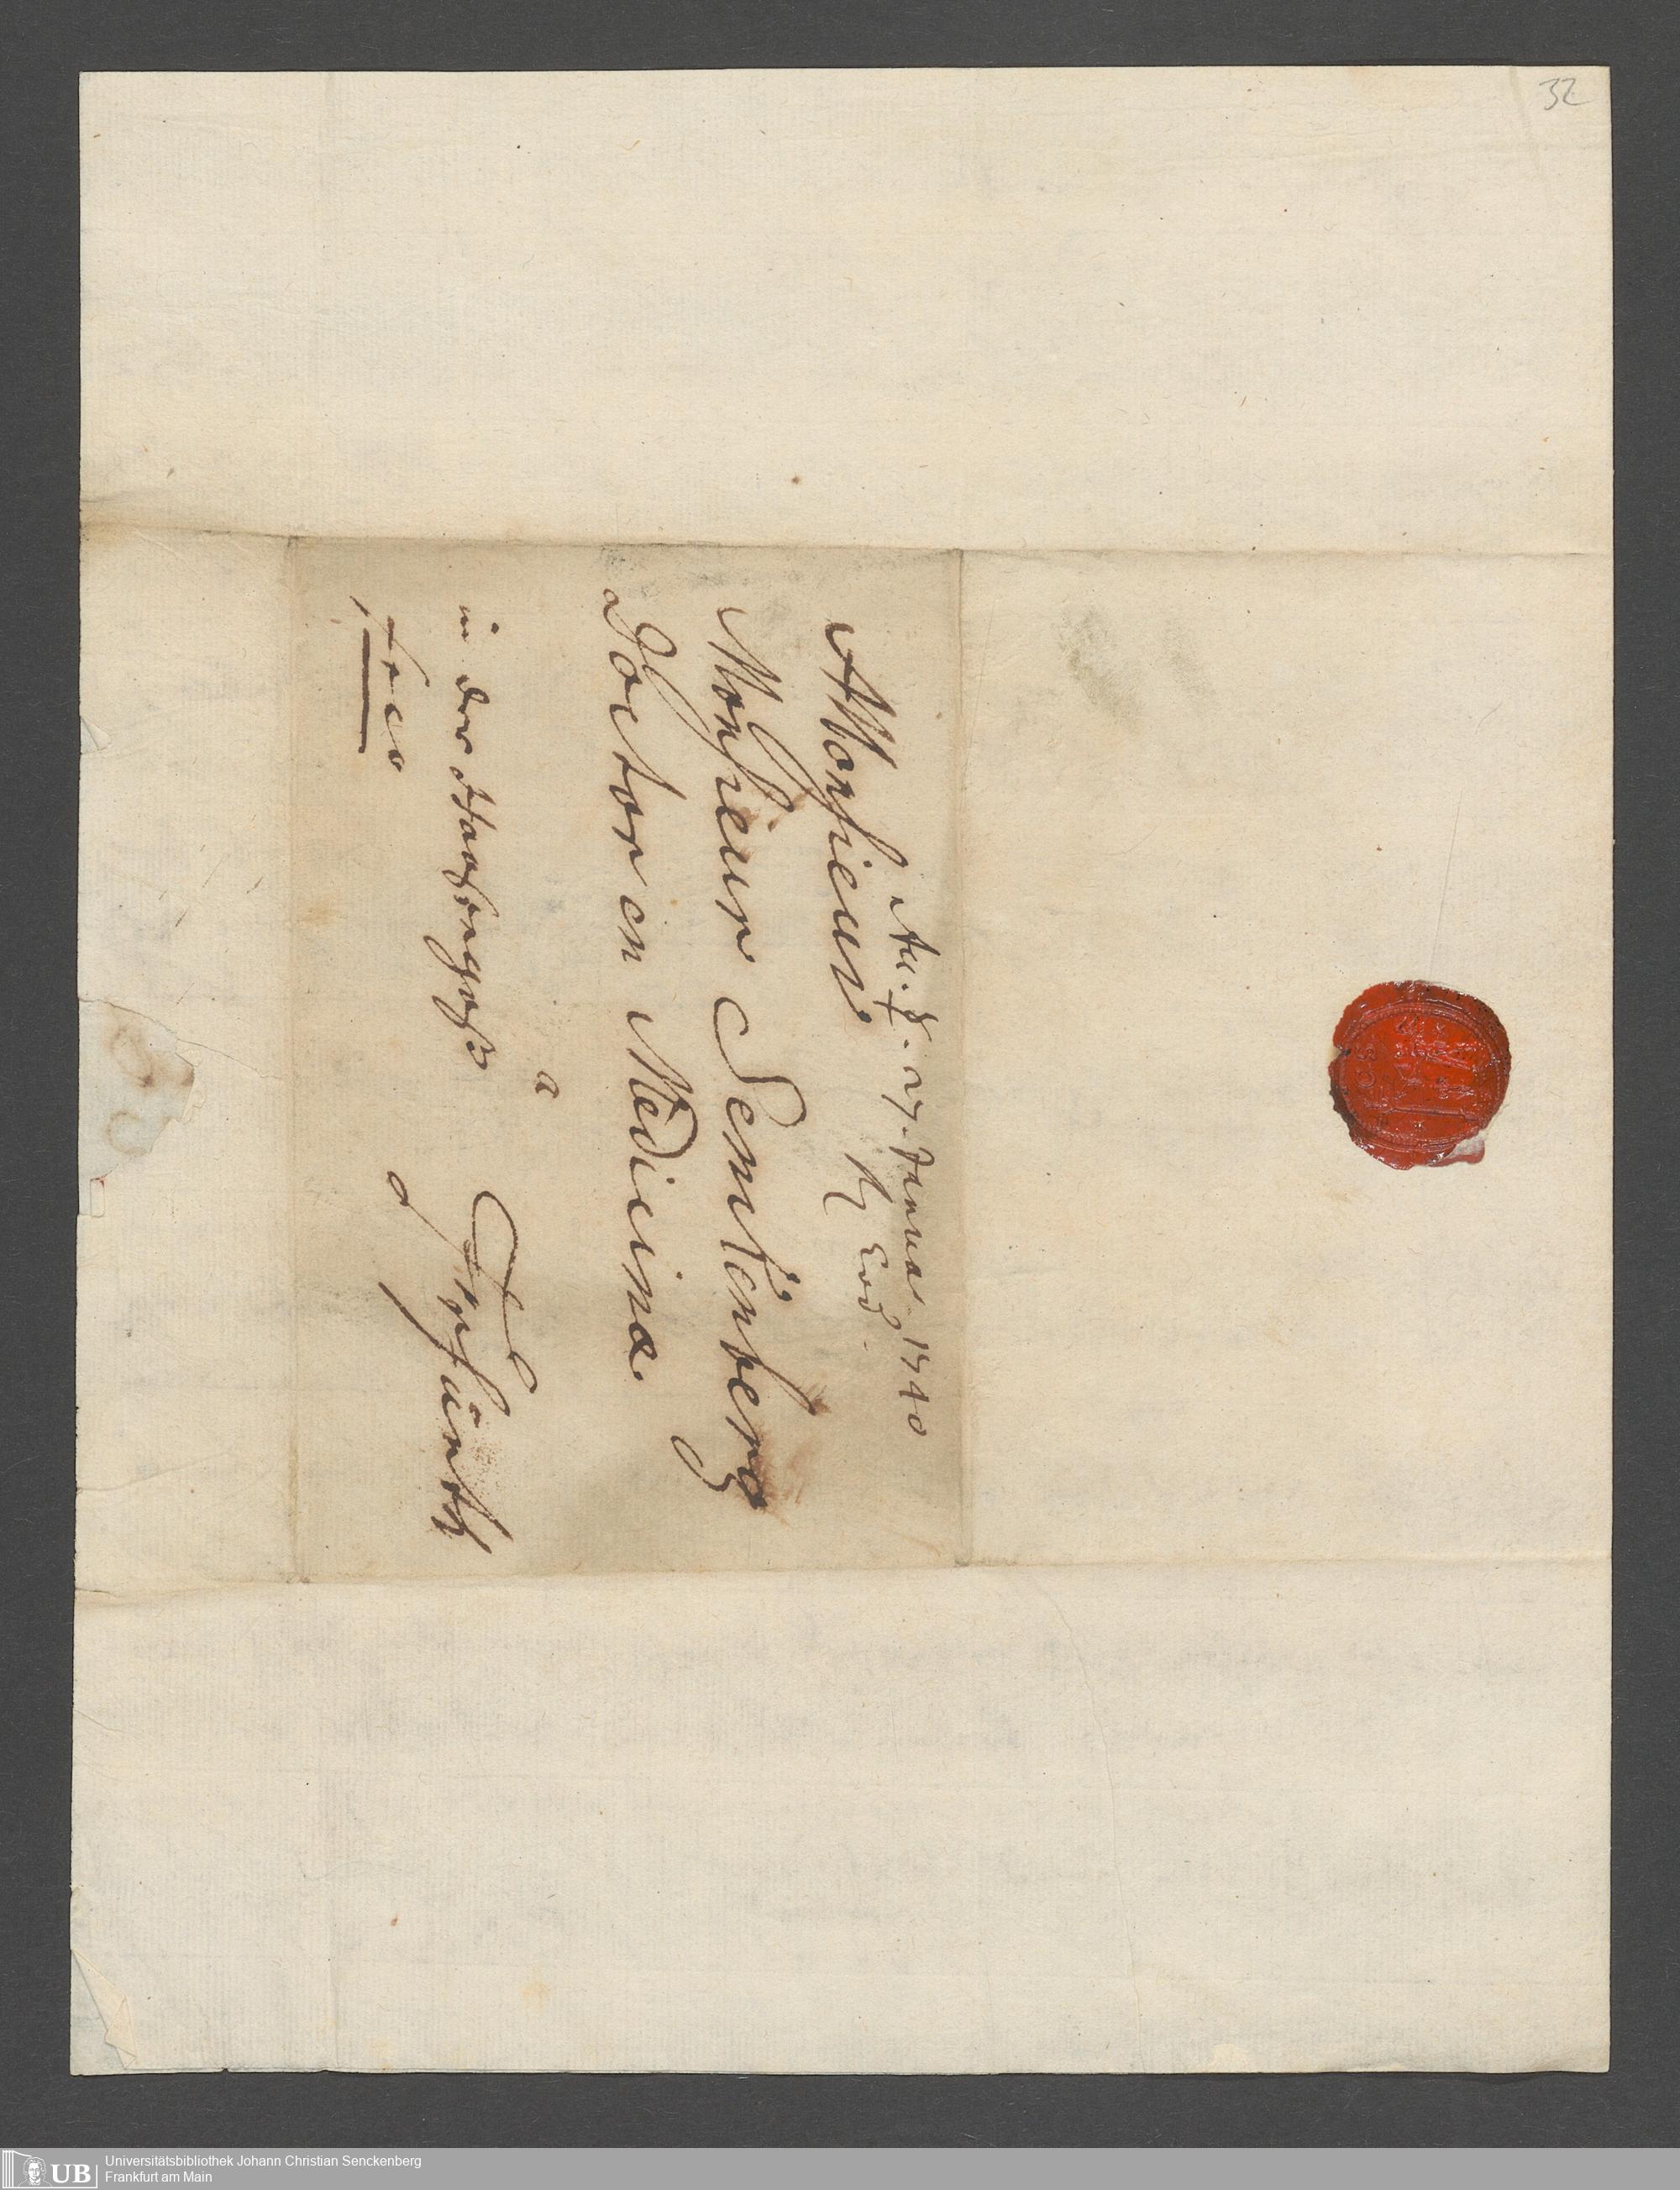 32
Acc. d. 27. Januar. 1740
Rz eod.
Monsieur
Monsieur Senckenberg
Doctor en Medicine
a
Francfurth
in der Haaßengaß
frco
Universitätsbibliothek Johann Christian Senckenberg
Frankfurt am Main
UB